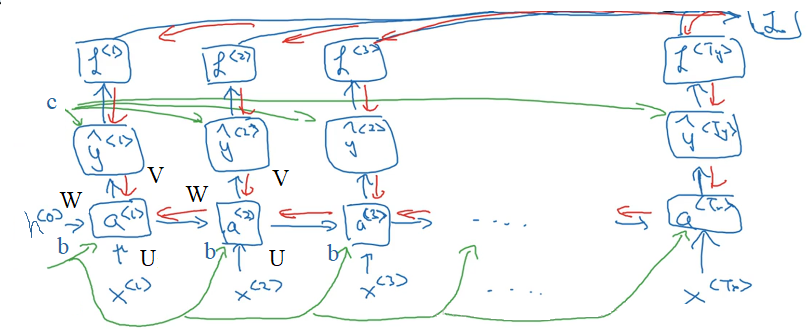 ℒ
ℒ<1> ℒ<2> ℒ<3> ℒ<Ty>
c
ŷ<1> ŷ<2> ŷ<2> ŷ<Ty>
V V
W W
h(0) a<1> a<2> a<3> .... a<Tx>
b U b U b
x<1> x<2> x<3> .... x<Tx>